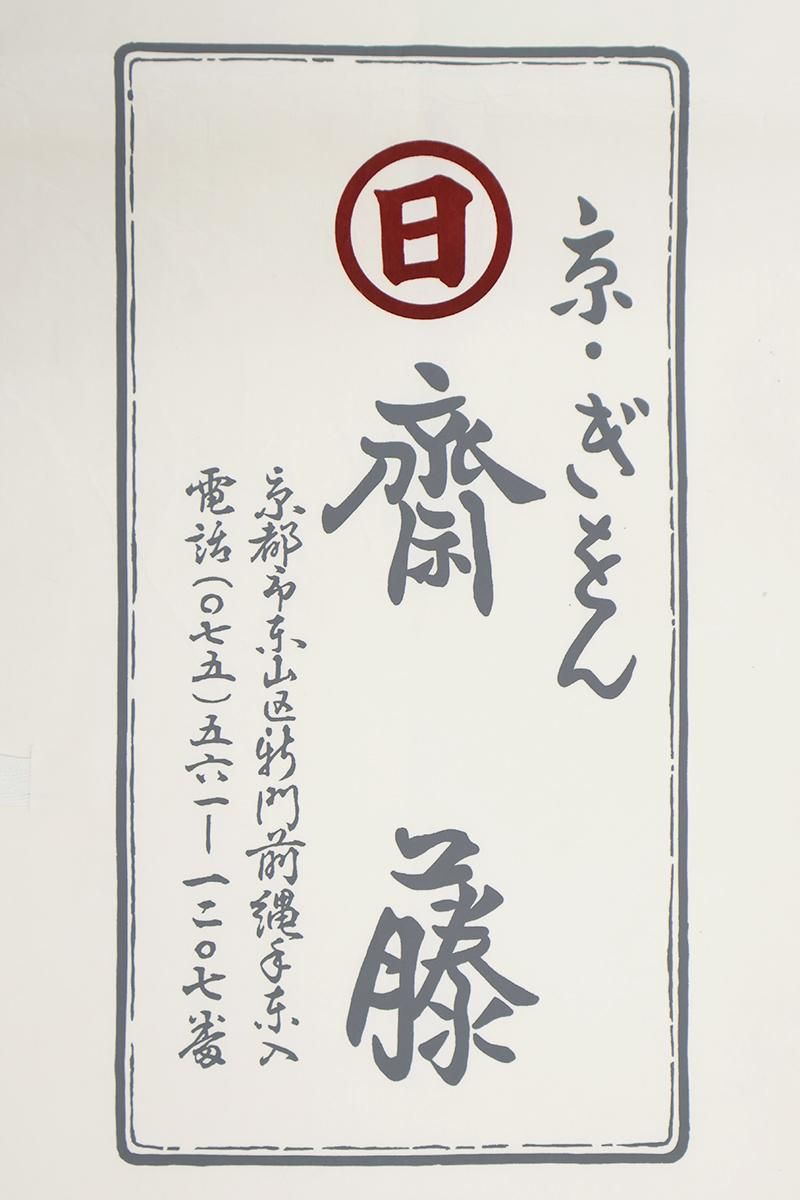 京・ぎをん
日
齋藤
京都市东山区新門前縄手东入
電話(〇七五)五六一ー一二〇七番